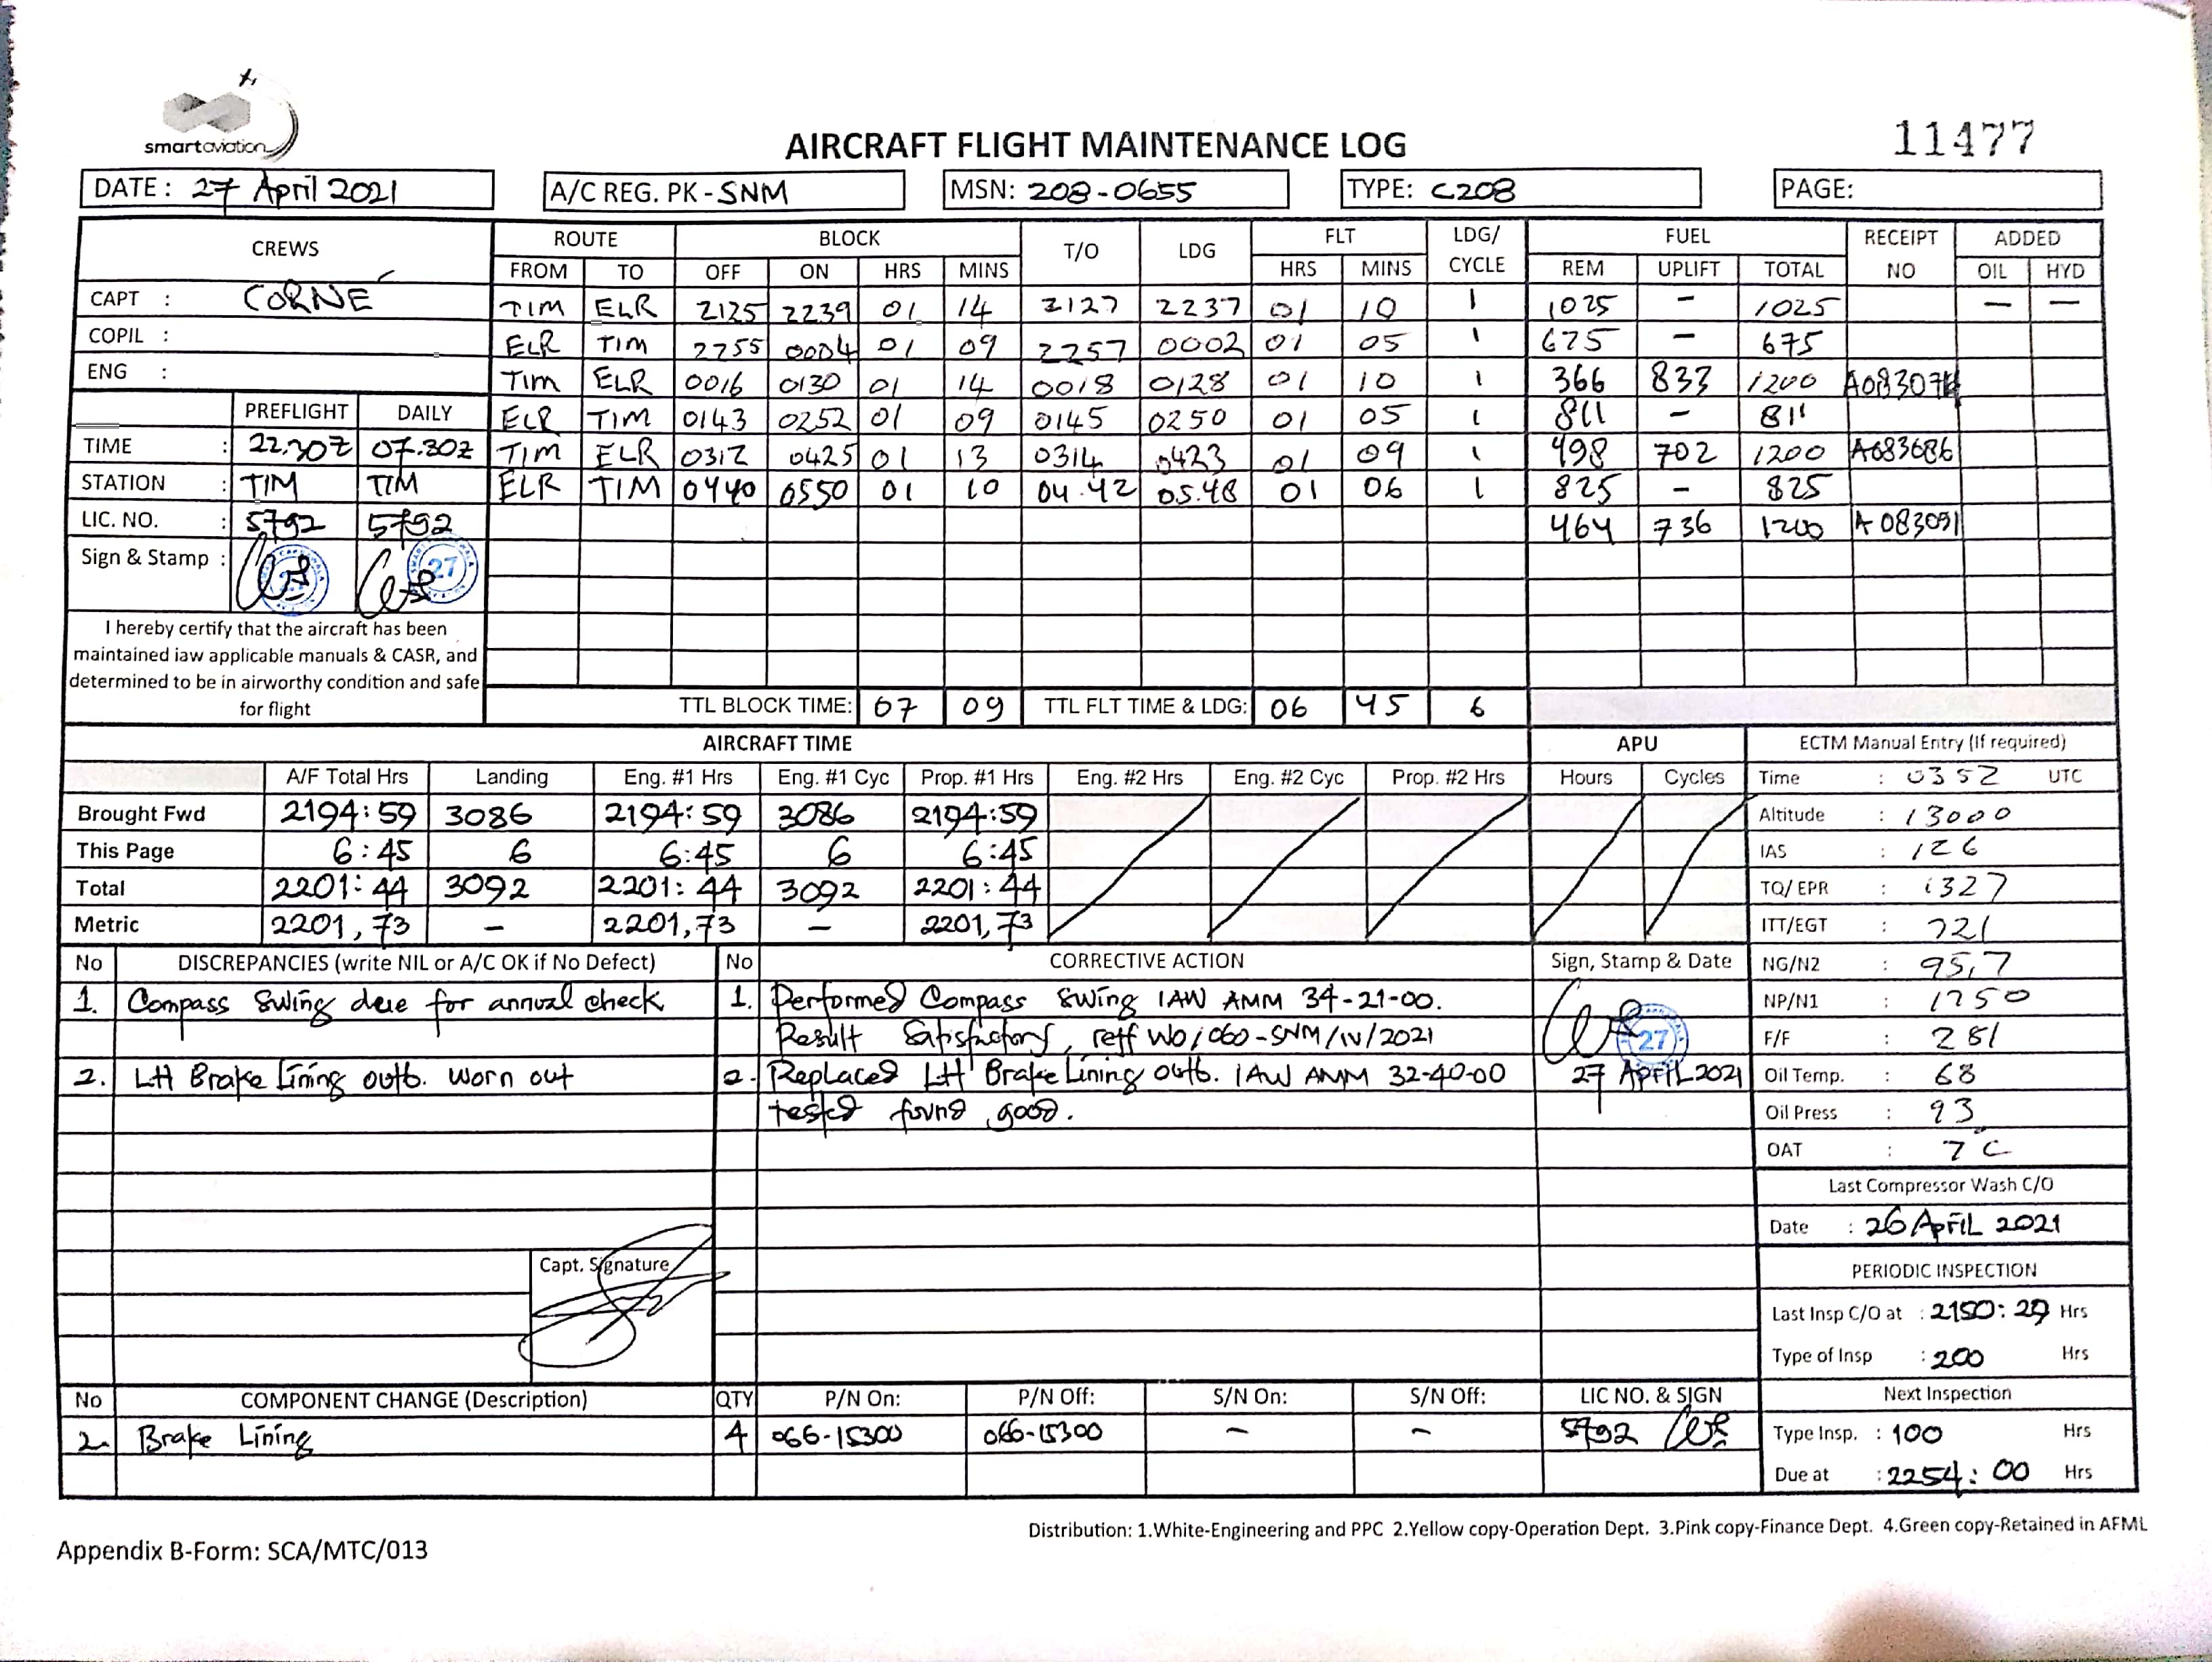 smartaviation
AIRCRAFT FLIGHT MAINTENANCE LOG
11477
DATE: 27 April 2021 A/C REG. PK-SNM MSN: 208-0655 TYPE: C208 PAGE:
CREWS ROUTE BLOCK T/O LDG FLT LDG/CYCLE FUEL RECEIPT NO ADDED
FROM TO OFF ON HRS MINS HRS MINS REM UPLIFT TOTAL OIL HYD
CAPT : CORNÉ TIM ELR 2125 2239 01 14 2127 2237 01 10 1 1025 - 1025 — —
COPIL : ELR TIM 2255 0004 01 09 2257 0002 01 05 1 675 - 675
ENG : TIM ELR 0016 0130 01 14 0018 0128 01 10 1 366 833 1200
PREFLIGHT DAILY ELR TIM 0143 0252 01 09 0145 0250 01 05 1 811 - 811
TIME : 22.30Z 07.30Z TIM ELR 0312 0425 01 13 0314 0423 01 09 1 498 702 1200 A083686
STATION : TIM TIM ELR TIM 0440 0550 01 10 04.42 05.48 01 06 1 825 - 825
LIC. NO. : 5792 5792 464 736 1200 A083091
Sign & Stamp : 27
I hereby certify that the aircraft has been
maintained iaw applicable manuals & CASR, and
determined to be in airworthy condition and safe
for flight
TTL BLOCK TIME: 07 09 TTL FLT TIME & LDG: 06 45 6
AIRCRAFT TIME APU ECTM Manual Entry (If required)
A/F Total Hrs Landing Eng. #1 Hrs Eng. #1 Cyc Prop. #1 Hrs Eng. #2 Hrs Eng. #2 Cyc Prop. #2 Hrs Hours Cycles Time : 0352 UTC
Brought Fwd 2194:59 3086 2194:59 3086 2194:59 Altitude : 13000
This Page 6:45 6 6:45 6 6:45 IAS : 126
Total 2201:44 3092 2201:44 3092 2201:44 TQ/ EPR : 1327
Metric 2201,73 - 2201,73 - 2201,73 ITT/EGT : 721
No DISCREPANCIES (write NIL or A/C OK if No Defect) No CORRECTIVE ACTION Sign, Stamp & Date NG/N2 : 95,7
1. Compass Swing due for annual check 1. Performed Compass Swing IAW AMM 34-21-00. NP/N1 : 1750
Result Satisfactory, reff WO/060-SNM/IV/2021 27 F/F : 281
2. LH Brake Lining outb. Worn out 2. Replaced LH Brake Lining outb. IAW AMM 32-40-00 27 APRIL 2021 Oil Temp. : 68
tested found good. Oil Press : 93
OAT : 7°C
Last Compressor Wash C/O
Date : 26 APRIL 2021
Capt. Signature
PERIODIC INSPECTION
Last Insp C/O at : 2150:29 Hrs
Type of Insp : 200 Hrs
No COMPONENT CHANGE (Description) QTY P/N On: P/N Off: S/N On: S/N Off: LIC NO. & SIGN Next Inspection
2. Brake Lining 4 066-15300 066-15300 - - 5792 Type Insp. : 100 Hrs
Due at : 2254:00 Hrs
Distribution: 1.White-Engineering and PPC 2.Yellow copy-Operation Dept. 3.Pink copy-Finance Dept. 4.Green copy-Retained in AFML
Appendix B-Form: SCA/MTC/013